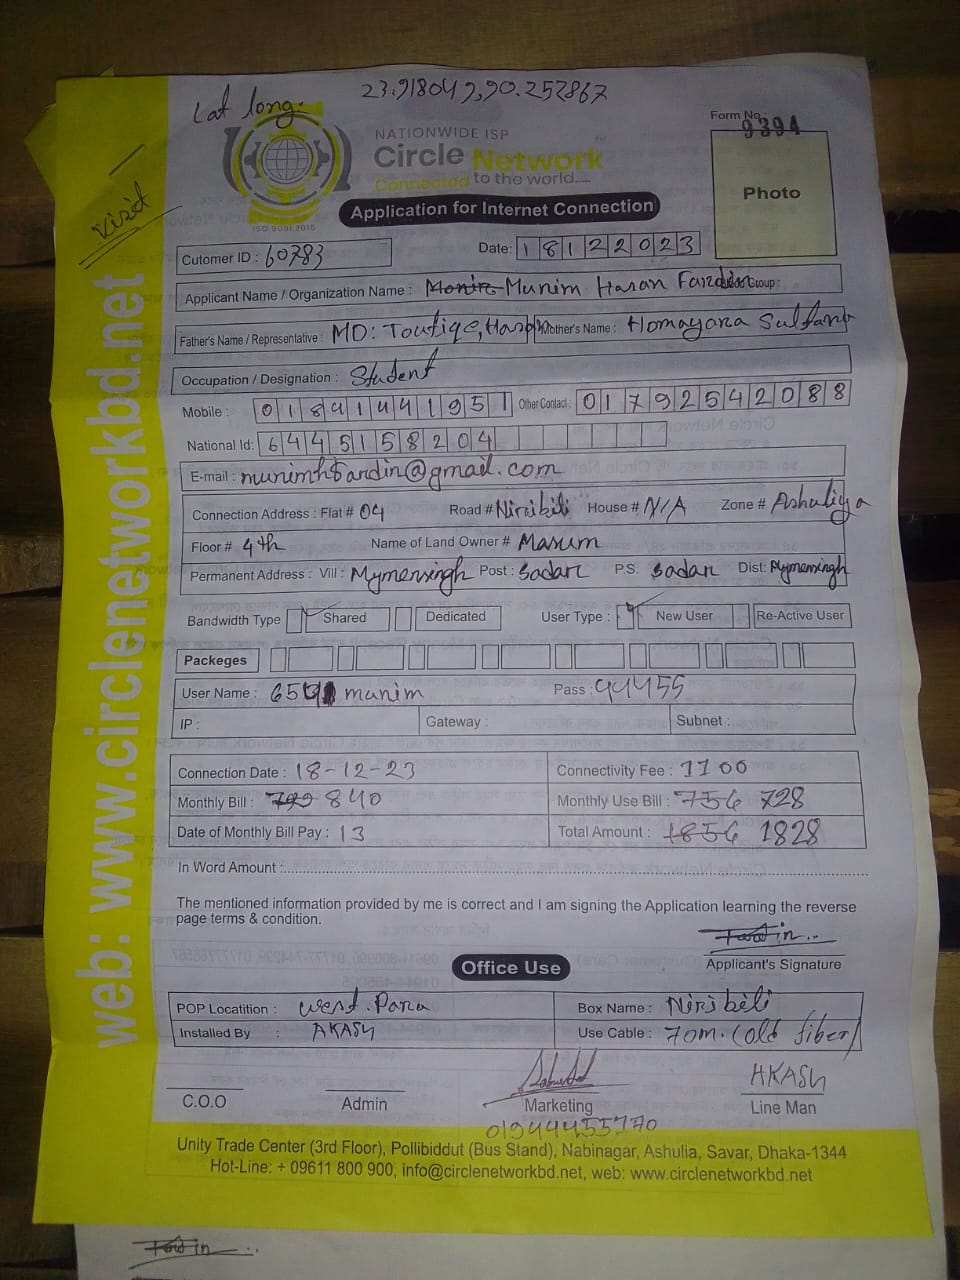 Lat long: 23.918049,90.252867
Visit
NATIONWIDE ISP
Circle Network™
Connected to the world.....
ISO 9001:2015
Form No: 9394
Photo
Application for Internet Connection
Cutomer ID : 60783 Date: 18122023
Applicant Name / Organization Name : Munim Hasan Fardin Group :
Father's Name / Representative : MD: Toufiqe, Hasan Mother's Name : Homayara Sultana
Occupation / Designation : Student
Mobile : 01841441951 Other Contact : 01792542088
National Id: 6445158204
E-mail : munimhfardin@gmail.com
Connection Address : Flat # 04 Road # Niribili House # N/A Zone # Ashuliya
Floor # 4th Name of Land Owner # Masum
Permanent Address : Vill : Mymensingh Post : Sadar P.S. Sadar Dist: Mymensingh
Bandwidth Type Shared Dedicated User Type : New User Re-Active User
Packeges
User Name : munim Pass : 44455
IP : Gateway : Subnet :
Connection Date : 18-12-23 Connectivity Fee : 1100
Monthly Bill : 799 840 Monthly Use Bill : 756 728
Date of Monthly Bill Pay : 13 Total Amount : 1856 1828
In Word Amount :
The mentioned information provided by me is correct and I am signing the Application learning the reverse
page terms & condition.
Fardin
Applicant's Signature
Office Use
POP Locatition : West Para Box Name : Niribili
Installed By : AKASH Use Cable : 70m. (old fiber)
AKASH
C.O.O Admin Marketing Line Man
01944455770
Unity Trade Center (3rd Floor), Pollibiddut (Bus Stand), Nabinagar, Ashulia, Savar, Dhaka-1344
Hot-Line: + 09611 800 900, info@circlenetworkbd.net, web: www.circlenetworkbd.net
web: www.circlenetworkbd.net
Fardin